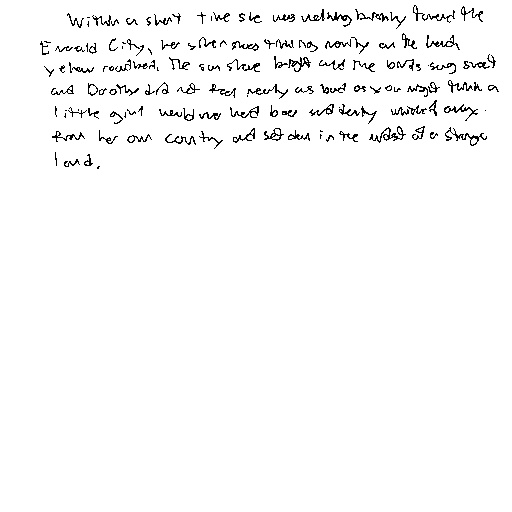 Within a short time she was walking briskly toward the
Emerald City, her silver shoes tinkling merrily on the hard,
yellow roadbed. The sun shone bright and the birds sang sweet
and Dorothy did not feel nearly as bad as you might think a
little girl would who had been suddenly whisked away
from her own country and set down in the midst of a strange
land.